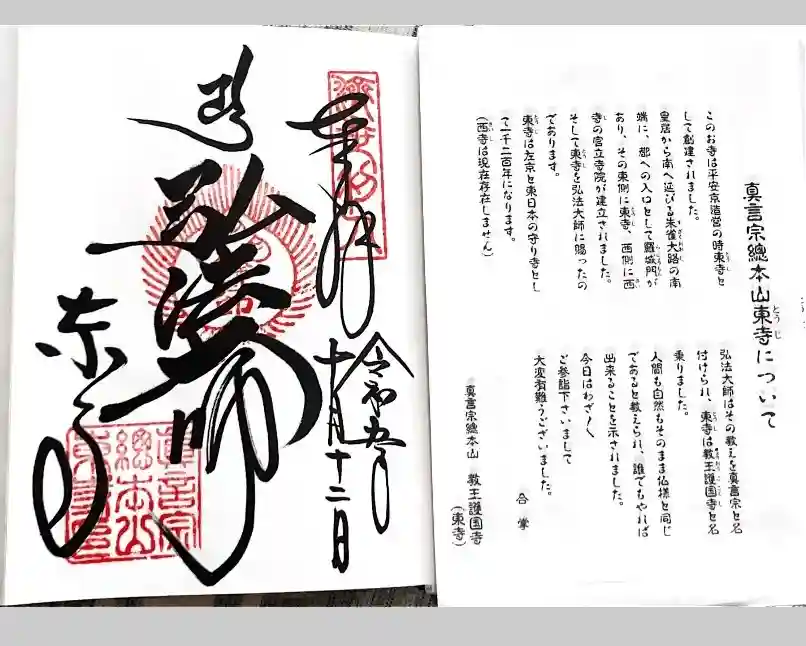 真言宗總本山東寺について
このお寺は平安京造営の時東寺と
して創建されました。
皇居から南へ延びる朱雀大路の南
端に、都への入口として羅城門が
あり、その東側に東寺、西側に西
寺の官立寺院が建立されました。
そして東寺を弘法大師に賜ったの
であります。
東寺は左京と東日本の守り寺とし
て一千二百年になります。
(西寺は現在存在しません)
弘法大師はその教えを真言宗と名
付けられ、東寺は教王護国寺と名
乗りました。
人間も自然もそのまま仏様と同じ
であると教えられ、誰でもやれば
出来ることを示されました。
今日はわざ〱
ご参詣下さいまして
大変有難うございました。
合掌
真言宗總本山 教王護国寺
(東寺)
奉拝
令和五年
十月十二日
弘法大師
東寺
真言宗
總本山
東寺印